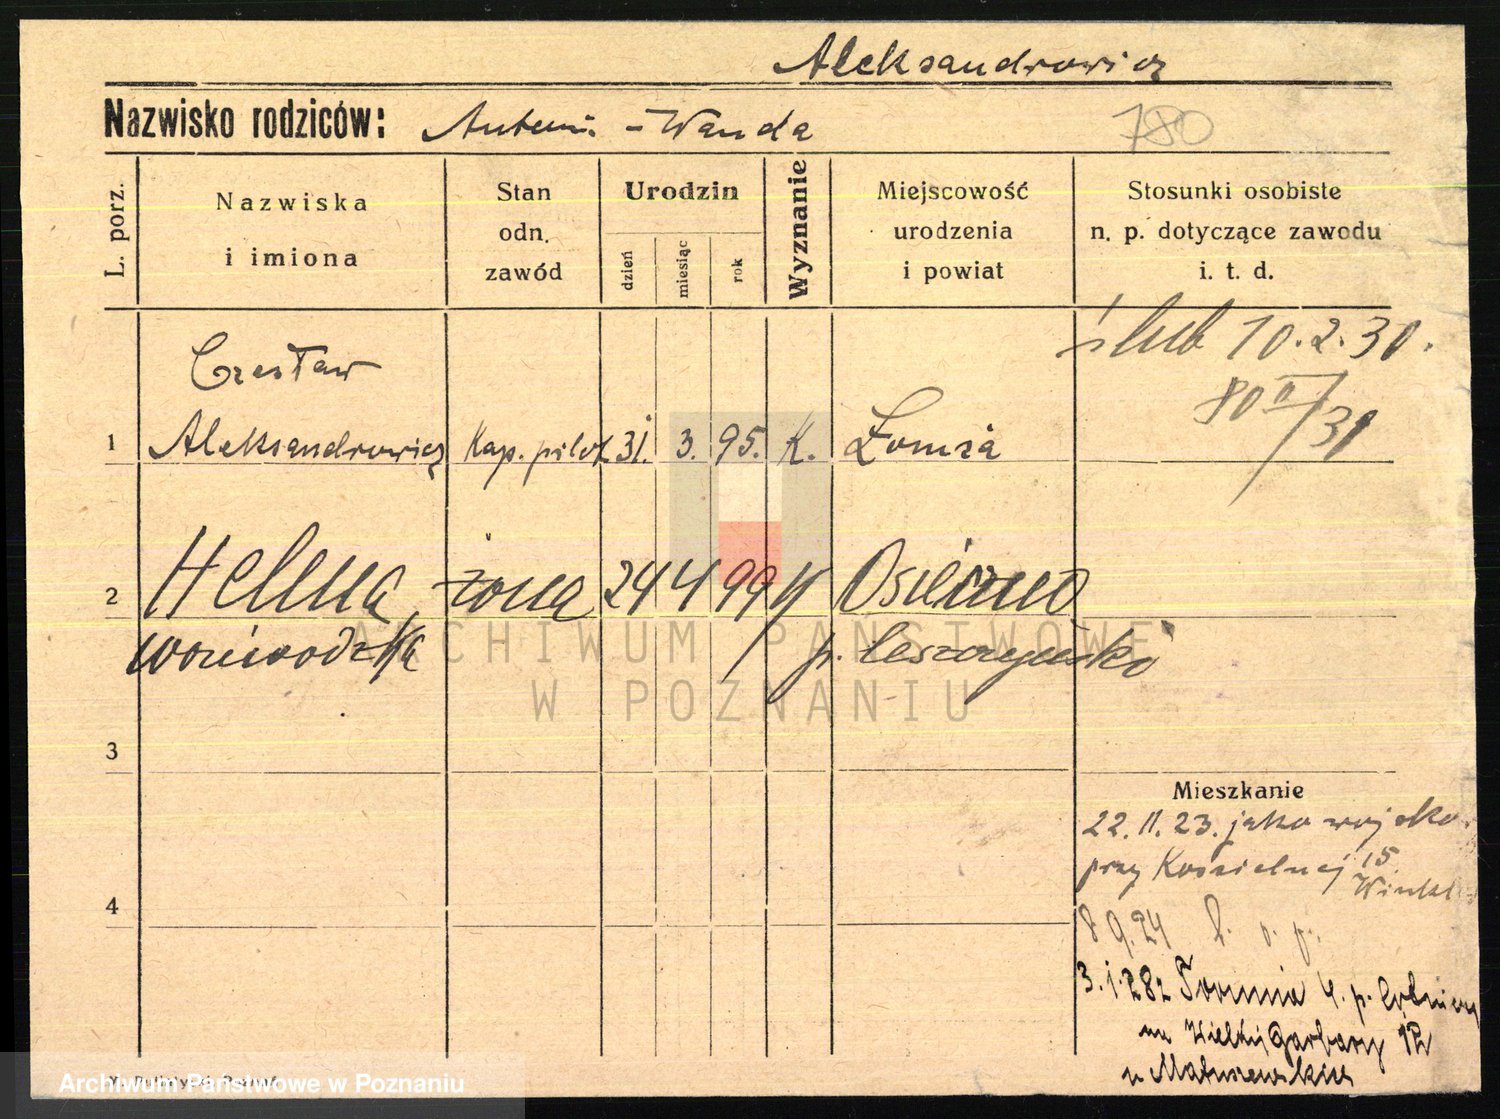 Aleksandrowicz
Nazwisko rodziców: Antoni - Wanda 780
L. porz.
Nazwiska
i imiona
Stan
odn.
zawód
Urodzin
dzień
miesiąc
rok
Wyznanie
Miejscowość
urodzenia
i powiat
Stosunki osobiste
n. p. dotyczące zawodu
i. t. d.
ślub 10.2.30.
80 II/30
Czesław
1 Aleksandrowicz Kap. pilot 31. 3. 95. K. Łomża
2 Helena żona 24 4 99 Osieczno
p. leszczyński
3
4
Mieszkanie
22.11.23. jako wojsko.
przy Kościelnej 15
8 9.24
3.1.28 z Torunia 4. p. lotniczy
na Wielkij Garbary 12
u Matuszewskich
ARCHIWUM PAŃSTWOWE
W POZNANIU
Archiwum Państwowe w Poznaniu